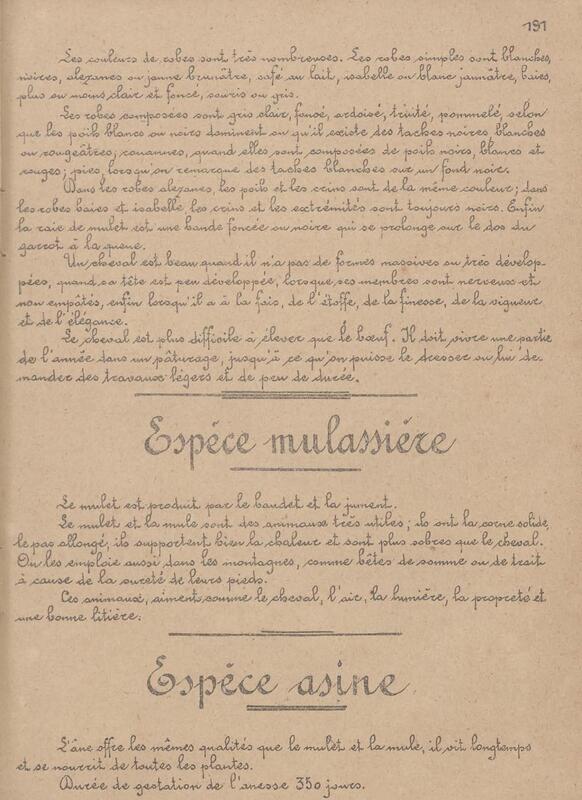 191
Les couleurs de robes sont très nombreuses. Les robes simples sont blanches,
noires, alezanes ou jaune brunâtre, café au lait, isabelle ou blanc jaunâtre, baies,
plus ou moins clair et foncé, souris ou gris.
Les robes composées sont gris clair, foncé, ardoisé, truité, pommelé, selon
que les poils blancs ou noirs dominent ou qu'il existe des taches noires, blanches
ou rougeâtres; rouannes, quand elles sont composées de poils noirs, blancs et
rouges; pies, lorsqu'on remarque des taches blanches sur un fond noir.
Dans les robes alezanes, les poils et les crins sont de la même couleur; dans
les robes baies et isabelle, les crins et les extrémités sont toujours noirs. Enfin
la raie de mulet est une bande foncée ou noire qui se prolonge sur le dos du
garrot à la queue.
Un cheval est beau quand il n'a pas de formes massives ou très dévelop-
pées, quand sa tête est peu développée, lorsque ses membres sont nerveux et
non empâtés, enfin lorsqu'il a à la fois, de l'étoffe, de la finesse, de la vigueur
et de l'élégance.
Le cheval est plus difficile à élever que le bœuf. Il doit vivre une partie
de l'année dans un pâturage, jusqu'à ce qu'on puisse le dresser ou lui de-
mander des travaux légers et de peu de durée.
Espéce mulassiére
Le mulet est produit par le baudet et la jument.
Le mulet et la mule sont des animaux très utiles; ils ont la corne solide,
le pas allongé, ils supportent bien la chaleur et sont plus sobres que le cheval.
On les emploie aussi dans les montagnes, comme bêtes de somme ou de trait
à cause de la sureté de leurs pieds.
Ces animaux, aiment comme le cheval, l'air, la lumière, la propreté et
une bonne litière.
Espéce asine
L'âne offre les mêmes qualités que le mulet et la mule, il vit longtemps
et se nourrit de toutes les plantes.
Durée de gestation de l'anesse 350 jours.